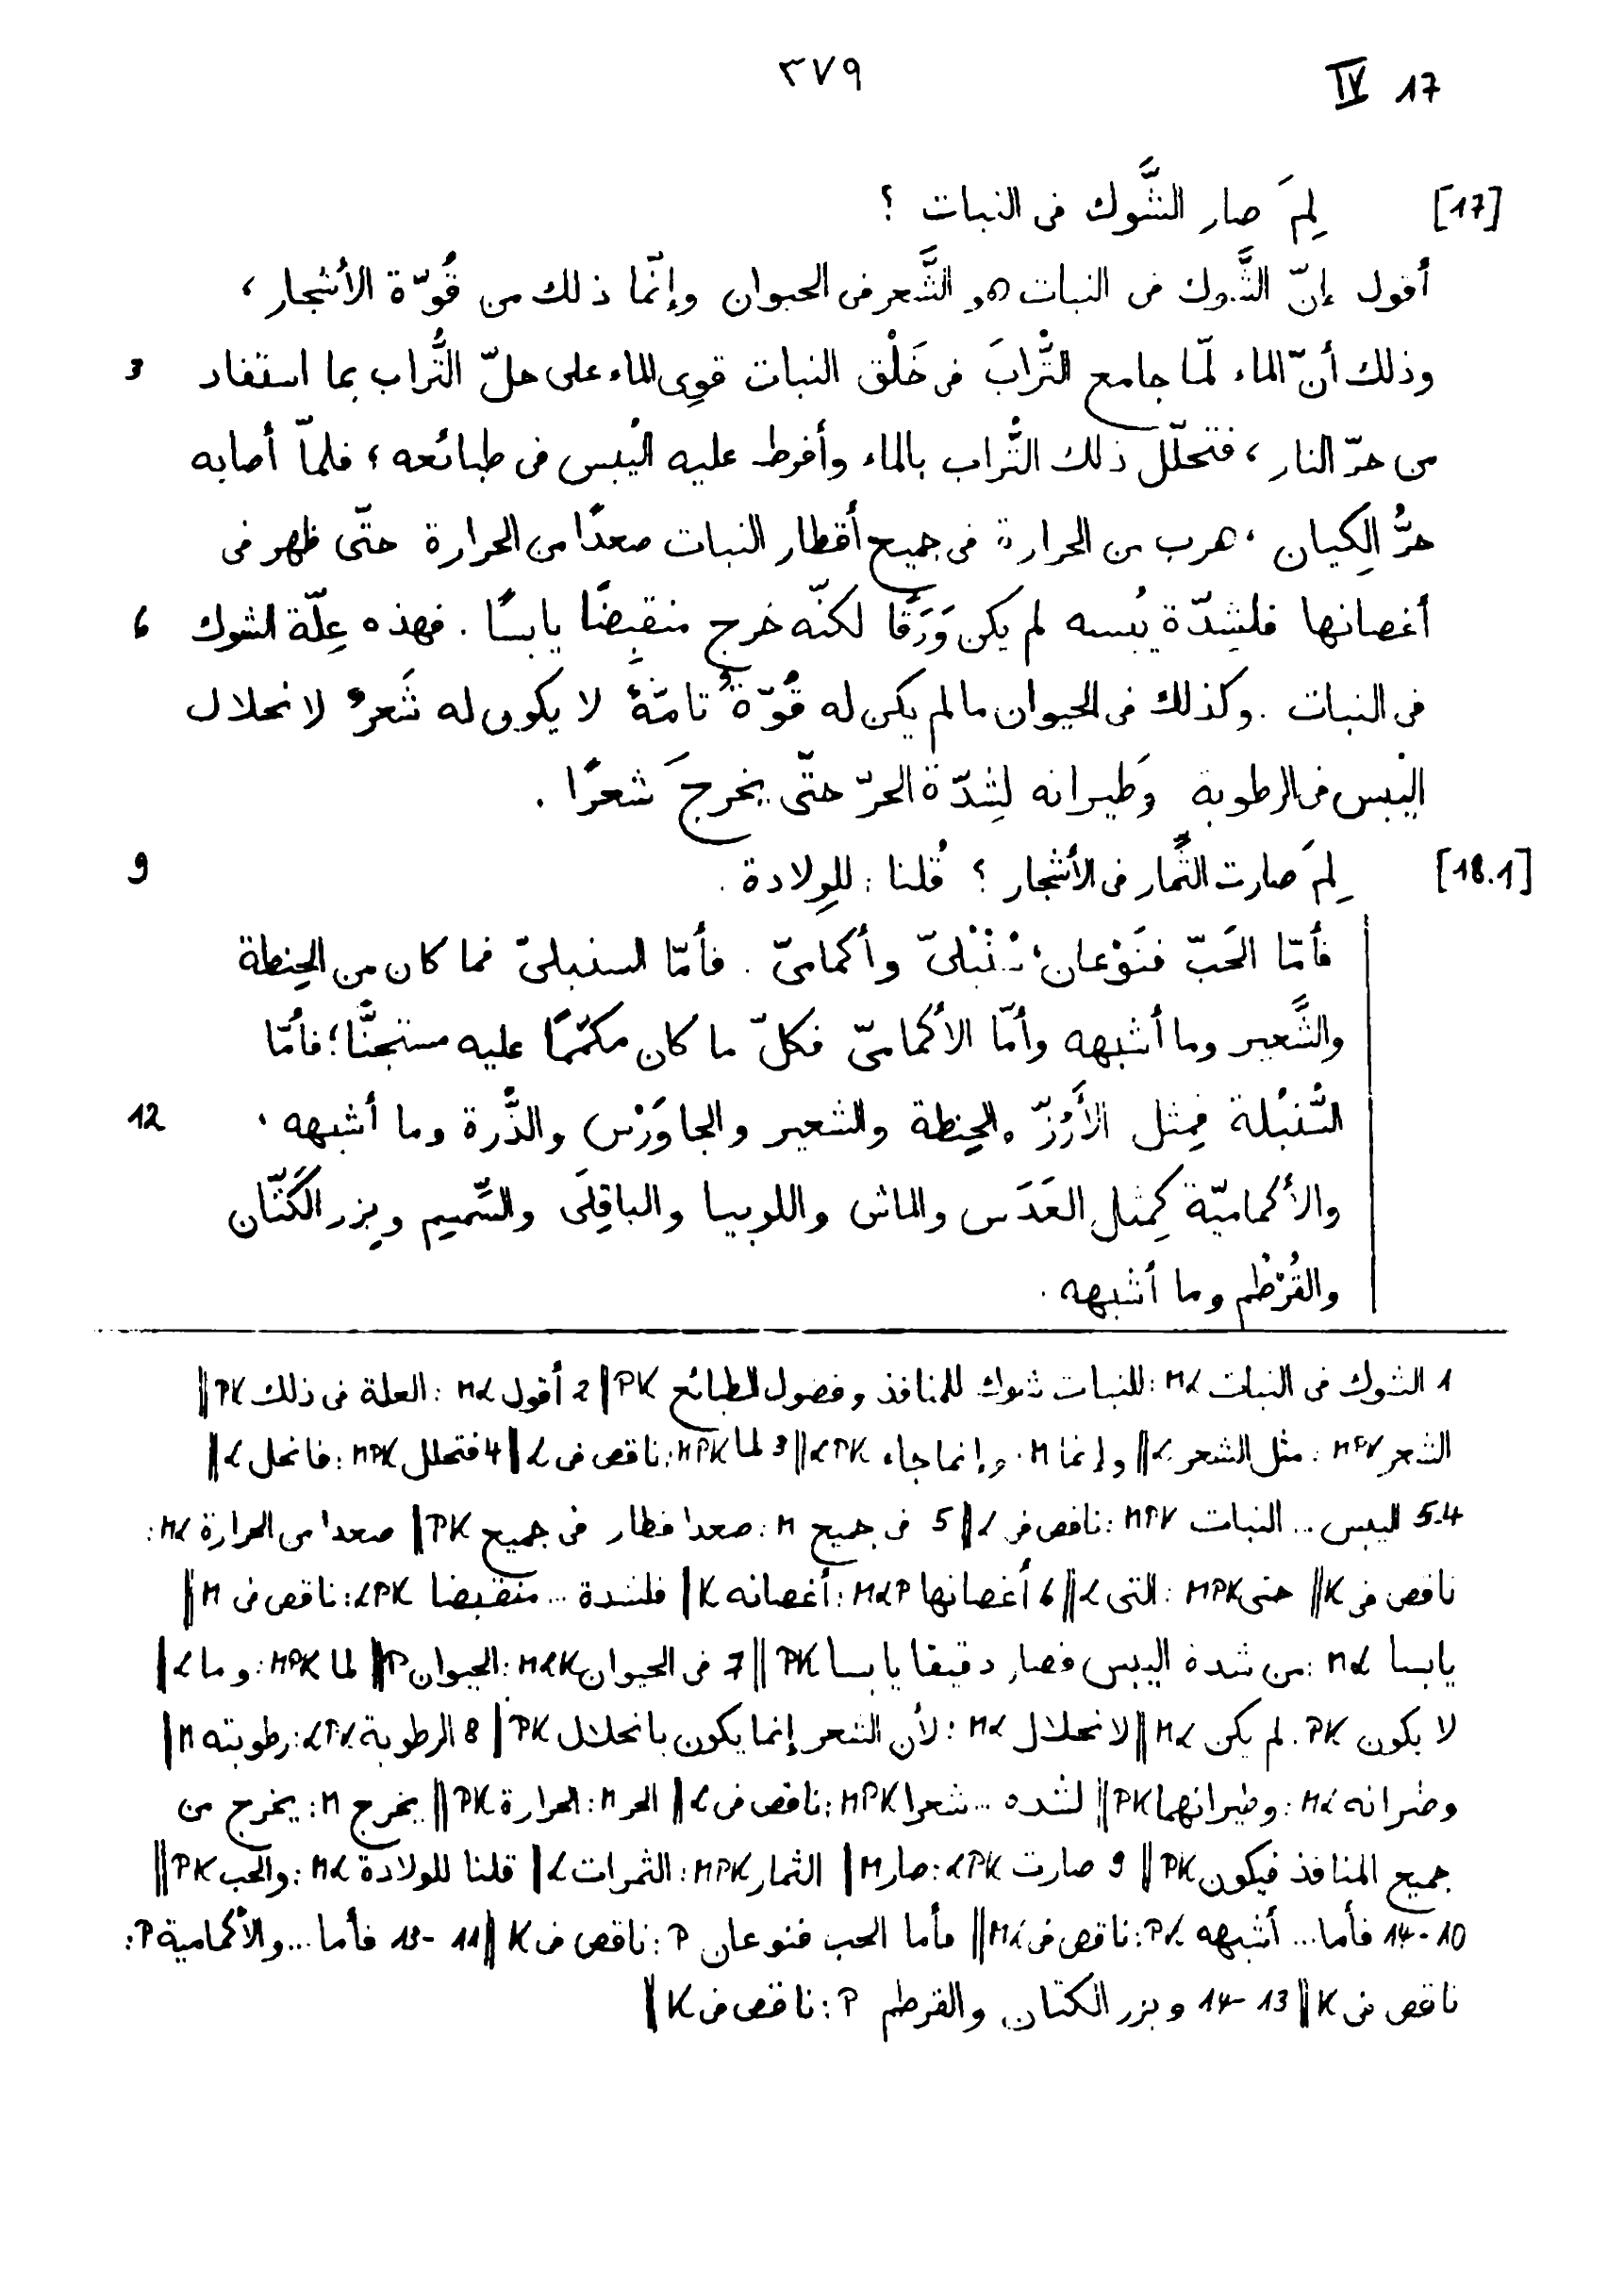 ٣٧٩ IV 17
[17] لِمَ صار الشَّوك فى النبات ؟
أقول إنّ الشَّوك فى النبات هو الشَّعر فى الحيوان وإنّما ذلك من قُوّة الأشجار ،
وذلك أنّ الماء لمّا جامع التُّرابَ فى خَلْق النبات قوِى الماء على حلّ التُّراب بما استفاد 3
من حرّ النار ، فتحلّل ذلك التُّراب بالماء وأفرط عليه اليُبس فى طبائعه ؛ فلمّا أصابه
حرُّ الكِيان ، هرب من الحرارة فى جميع أقطار النبات صعدًا من الحرارة حتّى ظهر فى
أغصانها فلِشِدّة يُبسه لم يكن وَرَقًا لكنّه خرج منقبِضًا يابسًا . فهذه عِلّة الشوك 6
فى النبات . وكذلك فى الحيوان ما لم يكن له قُوّةٌ تامّةٌ لا يكون له شَعرٌ لانحلال
اليُبس فى الرطوبة وَطيرانه لِشِدّة الحرّ حتّى يخرجَ شعرًا .
[18.1] لِمَ صارت الثِّمار فى الأشجار ؟ قُلنا : للوِلادة . 9
فأمّا الحَبّ فنَوْعان ، سُنْبُلىّ وأكمامىّ . فأمّا السنبلىّ فما كان من الحِنطة
والشَّعير وما أشبهه وأمّا الأكمامىّ فكلّ ما كان مكمَّمًا عليه مستجنًّا ؛ فأمّا
السُّنبُلة فمِثل الأَرُزّ والحِنطة والشعير والجاوَرْس والذُّرة وما أشبهه ، 12
والأكماميّة كمِثل العَدَس والماش واللوبيا والباقِلَى والسِّمسِم وبِزر الكَتّان
والقُرْطُم وما أشبهه .
1 الشوك فى النبات ML : للنبات شوك للمنافذ وفضول الطبائع PK | 2 أقول ML : العلة فى ذلك PK ||
الشعر MPK : مثل الشعر L || وإنما M : وإنما جاء LPK || 3 لما MPK : ناقص فى L || 4 فتحلل MPK : فانحل L ||
5.4 اليبس ... النبات MPK : ناقص فى L || 5 فى جميع M : صعدا فطار فى جميع PK | صعدا من الحرارة ML :
ناقص فى K || حتى MPK : التى L || 6 أغصانها MLP : أغصانه K | فلشدة ... منقبضا LPK : ناقص فى M ||
يابسا ML : من شدة اليبس فصار دقيقا يابسا PK || 7 فى الحيوان MLK : الحيوان P || لما MPK : وما L |
لا يكون PK : لم يكن ML || لانحلال ML : لأن الشعر إنما يكون بانحلال PK | 8 الرطوبة LPK : رطوبته M |
وطيرانه ML : وطيرانهما PK || لشدة ... شعرا MPK : ناقص فى L || الحر M : الحرارة PK || يخرج M : يخرج من
جميع المنافذ فيكون PK || 9 صارت LPK : صار M | الثمار MPK : الثمرات L | قلنا للولادة ML : والحب PK ||
10-14 فأما ... أشبهه PK : ناقص فى ML || فأما الحب فنوعان P : ناقص فى K || 11-13 فأما ... والأكمامية P :
ناقص فى K || 13-14 وبزر الكتان والقرطم P : ناقص فى K |